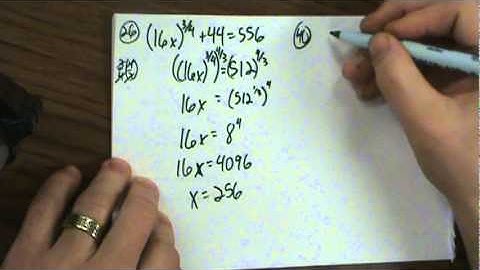 26 (16x)^3/4 + 44 = 556
((16x)^3/4)^4/3 = (512)^4/3
16x = (512^1/3)^4
16x = 8^4
16x = 4096
x = 256
40